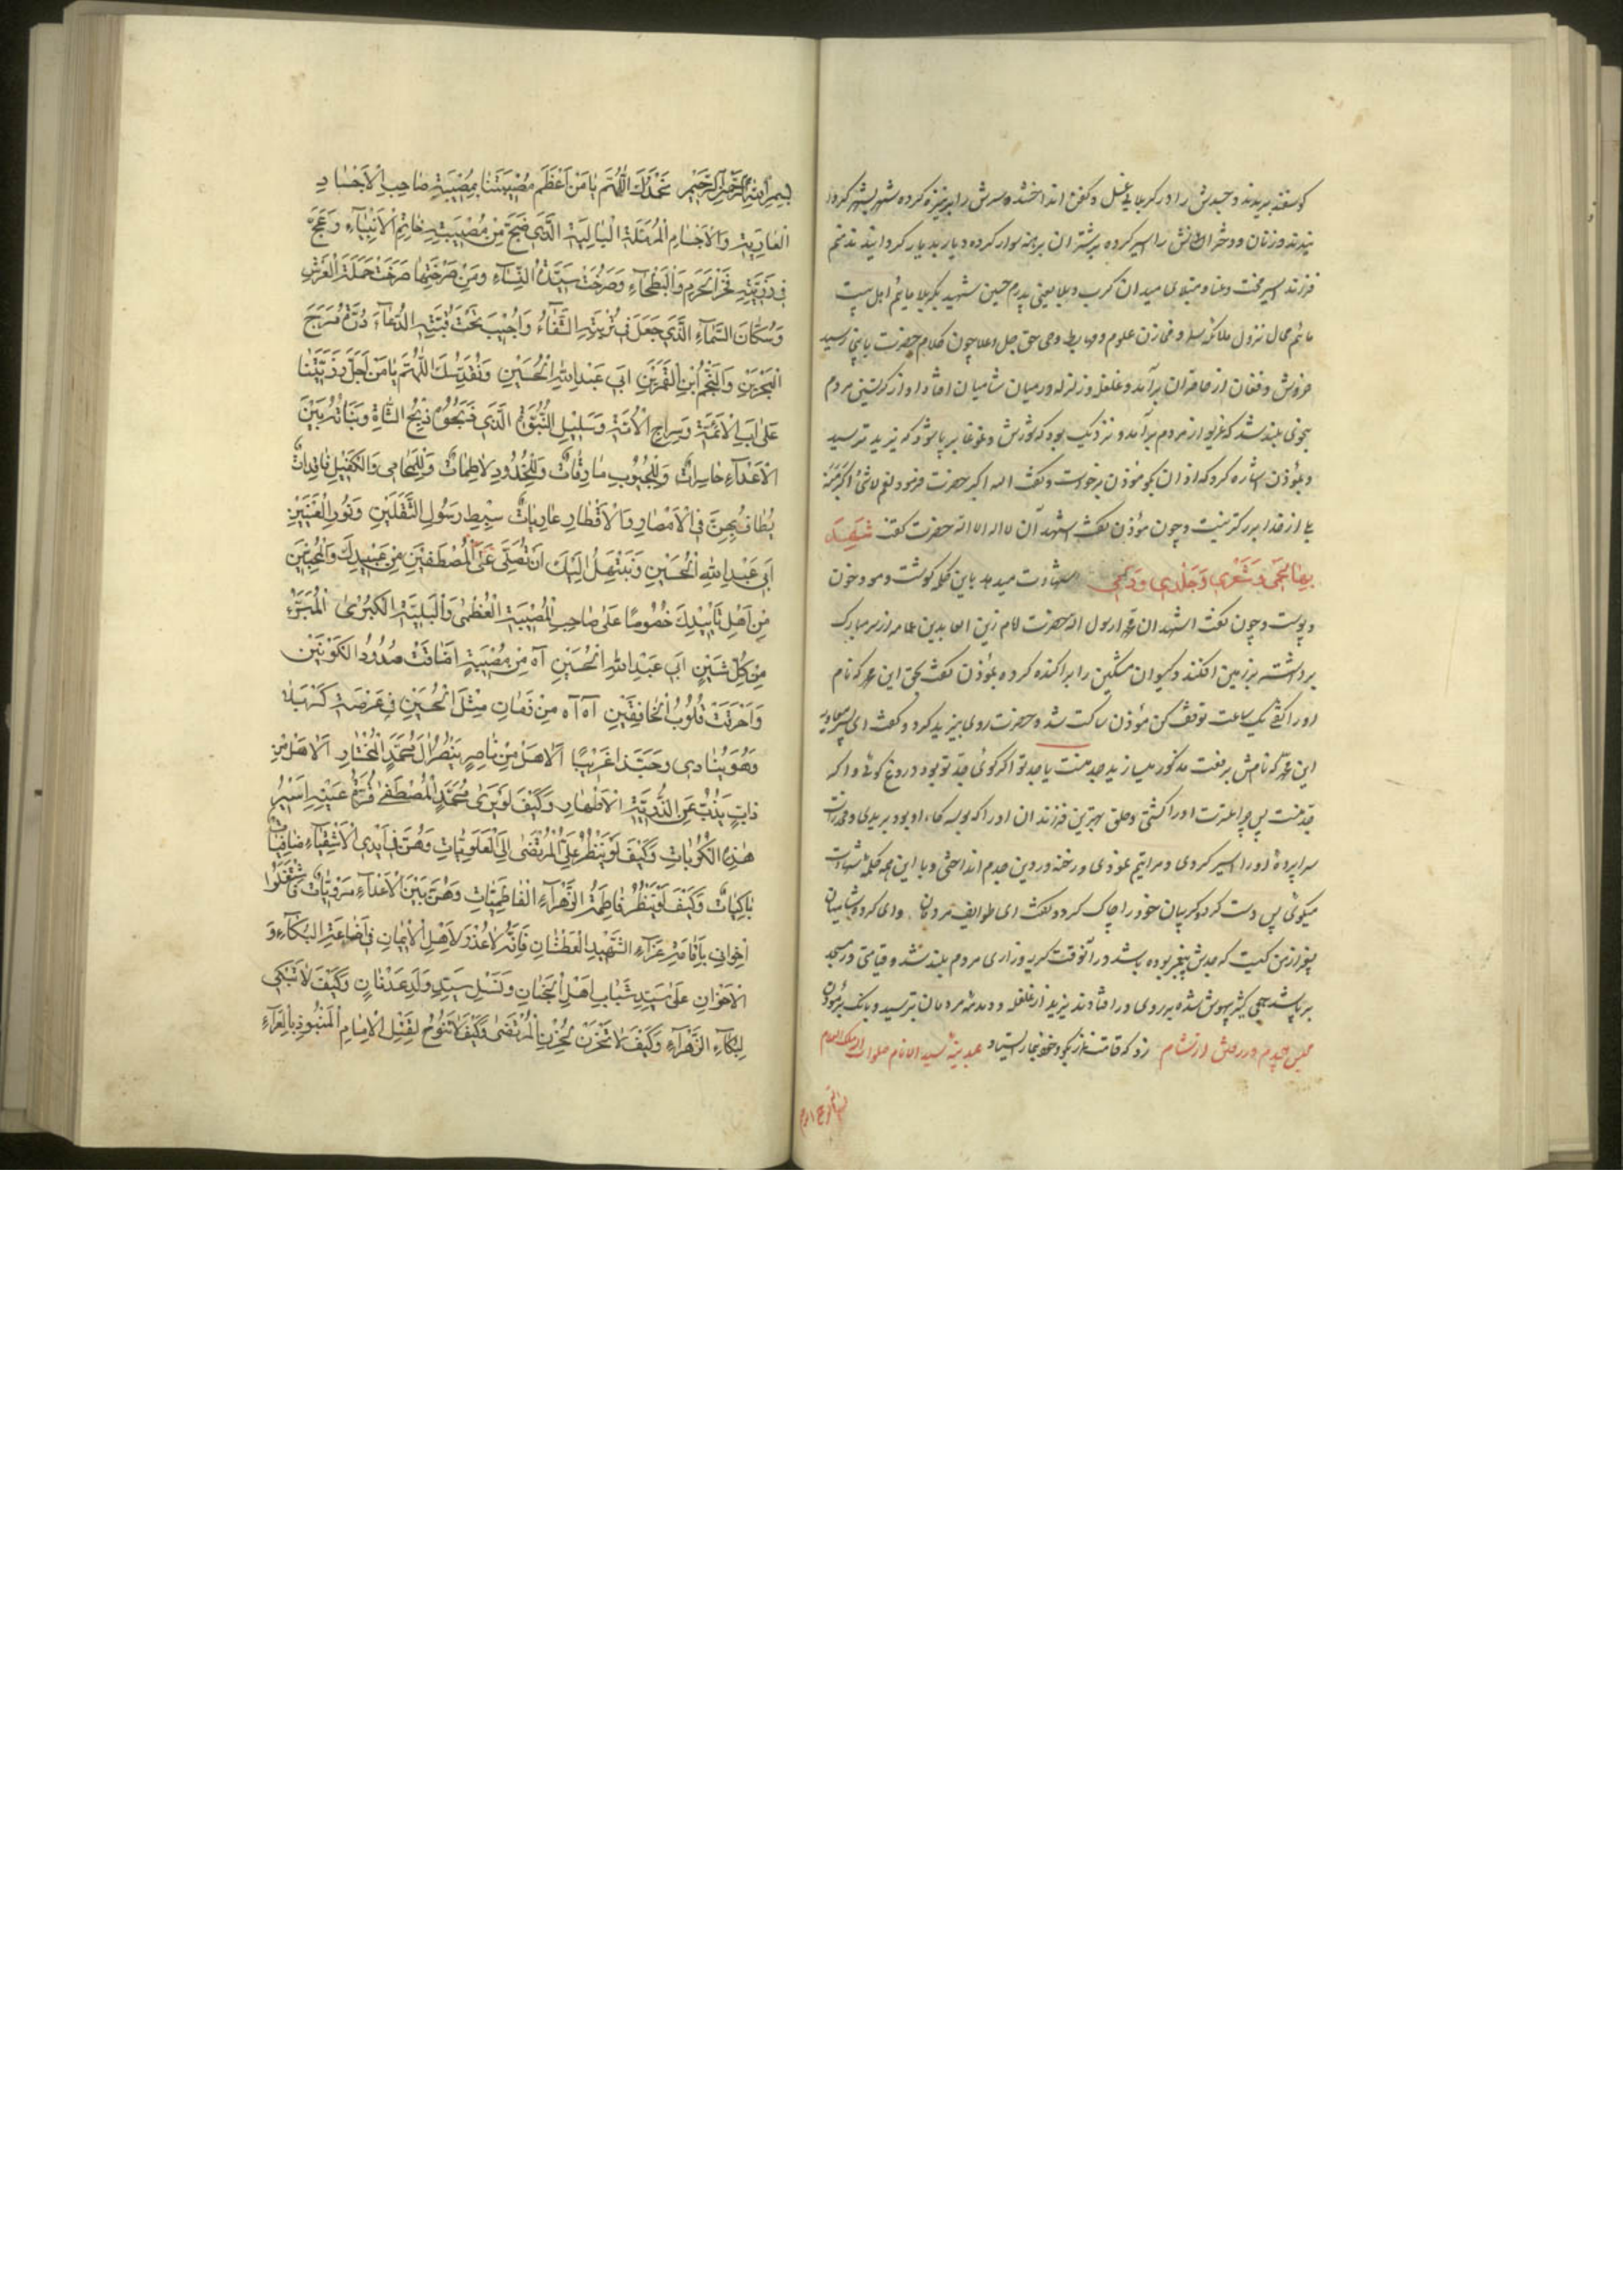 کوسفند بریدند و جسدش را در کربلا بی غسل و کفن انداختند و سرش را بر نیزه کرده شهر بشهر کردا
نیدند و زنان و دختران را اسیر کرده بر شتران برهنه سوار کرده دیار بدیار کردانیدند منم
فرزند اسیر محنت و عنا و مبتلای میدان کرب و بلا یعنی پدرم حسین شهید بکربلا مائیم اهل بیت
مائیم محال نزول ملائکه و مخازن علوم و مهابط وحی حق جل و علا چون کلام حضرت باینجا رسید
خروش و فغان از حاضران برآمد و غلغل و زلزله در میان شامیان افتاد و آواز کریستن مردم
بنوعی بلند شد که غریو از مردم برآمد و نزدیک بود که شورش و غوغا بر پا شود که یزید بترسید
و بمؤذن اشاره کرد که اذان بگو مؤذن برخواست و گفت الله اکبر حضرت فرمود نعم لا شئ اکبر منه
بلی از خدا بزرکتر نیست و چون مؤذن گفت اشهد ان لا اله الا الله حضرت گفت شَهِدَ
بِهَا لَحْمی وَ شَعْری وَ جَلْدی وَ دَمی شهادت میدهد باین کلمه گوشت و مو و خون
و پوست و چون گفت اشهد ان محمدا رسول الله حضرت امام زین العابدین عمامه از سر مبارک
برداشته بر زمین افکند و گیسوان مشکین را پراکنده کرده بمؤذن گفت بحق این محمد که نام
او را گفتی یک ساعت توقف کن مؤذن ساکت شد و حضرت روی بیزید کرد و گفت ای پسر معاویه
این محمد که نامش برفعت مذکور میسازید جد منست یا جد تو اگر کوئی جد تو بود دروغ کوئی و اگر
جد منست پس چرا عترت او را کشتی و حلق بهترین فرزندان او را که بوسه گاه او بود بریدی و مخدرات
سراپردهٔ او را اسیر کردی و مرا یتیم نمودی و رخنه در دین جدم انداختی و با این همه کلمهٔ شهادت
میکوئی پس دست کرد و کریبان خود را چاک کرد و گفت ای طوایف مردمان و ای گروه شامیان
بغیر از من کیست که جدش پیغمبر بوده باشد در آنوقت گریه و زاری مردم بلند شد و قیامتی در مسجد
بر پا شد جمعی کثیر بیهوش شده بر روی در افتادند یزید از غلغله و دمدمهٔ مردمان بترسید و بانک بر مؤذن
زد که قامت نماز بگو و خود بنماز ایستاد مجلس چهارم در رفتن از شام بمدینهٔ سید الانام صلوات الله الملک العلام
بِسْمِ اللهِ الرَّحْمنِ الرَّحیمِ نَحْمَدُكَ اللّهُمَّ یا مَنْ اَعْظَمَ مُصیبَتَنا بِمُصیبَةِ صاحِبِ الْاَجْسادِ
الْعارِیَةِ وَالْاَجْسامِ الْمُرَمَّلَةِ الْبالِیَةِ الَّذی ضَجَّ مِنْ مُصیبَتِهِ خاتِمُ الْاَنْبِیآءِ وَعَجَّ
فی رَزِیَّتِهِ فَخْرُ الْحَرَمِ وَالْبَطْحآءِ وَصَرَخَتْ سَیِّدَةُ النِّسآءِ وَمِنْ صَرْخَتِها صَرَخَتْ حَمَلَةُ الْعَرْشِ
وَسُکّانُ السَّمآءِ الَّذی جَعَلَ فی تُرْبَتِهِ الشِّفآءُ وَاُجیبَ تَحْتَ قُبَّتِهِ الدُّعآءُ دُرَّةُ مَرَجَ
الْبَحْرَیْنِ وَالنَّجْمُ ابْنِ الْقَمَرَیْنِ اَبی عَبْدِ اللهِ الْحُسَیْنِ وَنُقَدِّسُكَ اللّهُمَّ یا مَنْ اَجَلَّ رَزِیَّتَنا
عَلی اَبِ الْاَئِمَّةِ وَسِراجِ الْاُمَّةِ وَسَلیلِ النُّبُوَّةِ الَّذی ذَبَحُوهُ ذَبْحَ الشّاةِ وَبَناتُهُ بَیْنَ
الْاَعْدآءِ حاسِراتٌ وَلِلْجُیُوبِ شاقّاتٌ وَلِلْخُدُودِ لاطِماتٌ وَلِلْمُحامی وَالْکَفیلِ فاقِداتٌ
یُطافُ بِهِنَّ فِی الْاَمْصارِ وَالْاَقْطارِ عارِیاتٌ سِبْطِ رَسُولِ الثَّقَلَیْنِ وَنُورِ الْعَیْنَیْنِ
اَبی عَبْدِ اللهِ الْحُسَیْنِ وَنَبْتَهِلُ اِلَیْكَ اَنْ تُصَلِّیَ عَلَی الْمُصْطَفَیْنَ مِنْ عَبیدِكَ وَالْمُحِبّینَ
مِنْ اَهْلِ تَأْییدِكَ خُصُوصًا عَلی صاحِبِ الْمُصیبَةِ الْعُظْمی وَالْبَلِیَّةِ الْکُبْری الْمُبَرَّءِ
مِنْ کُلِّ شَیْنٍ اَبی عَبْدِ اللهِ الْحُسَیْنِ آهِ مِنْ مُصیبَةٍ اَضاقَتْ صُدُورَ الْکَوْنَیْنِ
وَاَحْرَقَتْ قُلُوبَ الْخافِقَیْنِ آه آه مِنْ زَمانٍ مِثْلُ الْحُسَیْنِ فی عَرْصَةِ کَرْبَلا
وَهُوَ یُنادی وَحیدًا غَریبًا اَلا هَلْ مِنْ ناصِرٍ یَنْصُرُ آلَ مُحَمَّدٍ الْمُخْتارِ اَلا هَلْ مِنْ
ذابٍّ یَذُبُّ عَنِ الذُّرِّیَّةِ الْاَطْهارِ وَکَیْفَ لَوْ یَری مُحَمَّدٍ الْمُصْطَفی قُرَّةُ عَیْنِهِ اَسیرُ
هٰذِهِ الْکُرُباتِ وَکَیْفَ لَوْ یَنْظُرُ عَلِیُّ الْمُرْتَضی اِلَی الْعَلَوِیّاتِ وَهُنَّ فی اَیْدِی الْاَشْقِیآءِ
باکِیاتٌ وَکَیْفَ لَوْ تَنْظُرُ فاطِمَةُ الزَّهْرآءِ الْفاطِمِیّاتِ وَهُنَّ بَیْنَ الْاَعْدآءِ فَاشْتَغِلُوا
اِخْوانی بِاِقامَةِ عَزآءِ الشَّهیدِ الْعَطْشانِ فَاِنَّهُ لا عُذْرَ لِاَهْلِ الْایمانِ فی اِضاعَةِ الْبُکآءِ وَ
الْاَحْزانِ عَلی سَیِّدِ شَبابِ اَهْلِ الْجِنانِ وَنَسْلِ سَیِّدِ وَلَدِ عَدْنانٍ وَکَیْفَ لا تَبْکی
لِبُکآءِ الزَّهْرآءِ وَکَیْفَ لا تَحْزَنُ لِحُزْنِ الْمُرْتَضی وَکَیْفَ لا تَنُوحُ لِقَتْلِ الْاِمامِ الْمَنْبُوذِ بِالْعَرآءِ